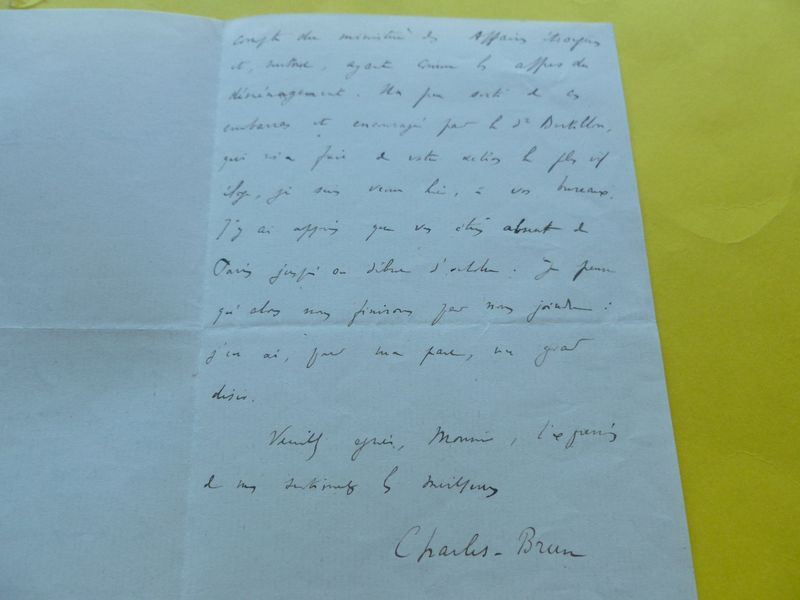 compte du ministère des Affaires étrangères
et, surtout, ayant connu les affres du
déménagement. Un peu sorti de ces
embarras et encouragé par le Dr Bertillon,
qui m'a fait de votre action le plus vif
éloge, je suis venu hier, à vos bureaux.
J'y ai appris que vous étiez absent de
Paris jusqu'au début d'octobre. Je pense
qu'alors nous finirons par nous joindre :
j'en ai, pour ma part, un grand
désir.
Veuillez agréer, Monsieur, l'expression
de mes sentiments les meilleurs
Charles-Brun